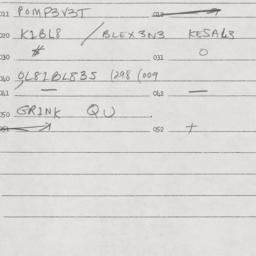 011 POMP3V3T 012
020 KIBL8 / BLEX3N3 KESAL3
030 # 031 O
040 OL81BL835 (298 (009
041 — 042 —
050 GRINK QU .
051 052 +